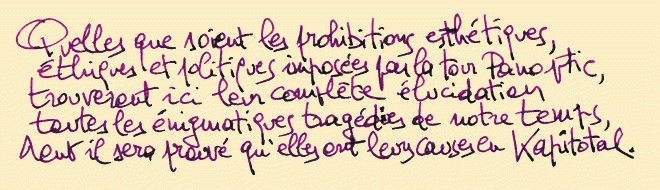 Quelles que soient les prohibitions esthétiques,
éthiques et politiques imposées par la tour Panoptic,
trouveront ici leur complète élucidation
toutes les énigmatiques tragédies de notre temps,
dont il sera prouvé qu'elles ont leurs causes en Kapitotal.